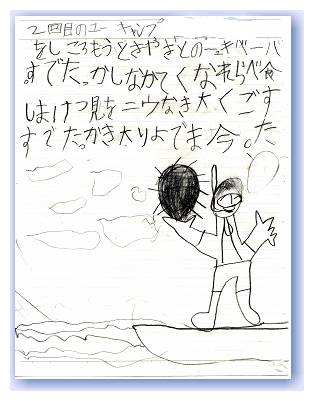 2回目のユー キャンプ
バーベキューのときやきとうもろこしを
食べられなくてかなしかったです。
すごく大きなウニを見つけまし
た。今までより大きかったです